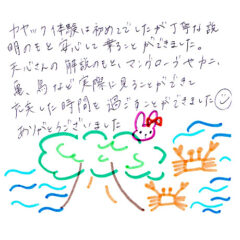 カヤック体験は初めてでしたが丁寧な説
明のもと安心して乗ることができました。
さんの解説のもと、マングローブやカニ、
亀、鳥など実際に見ることができて
充実した時間を過ごすことができました
ありがとうございました